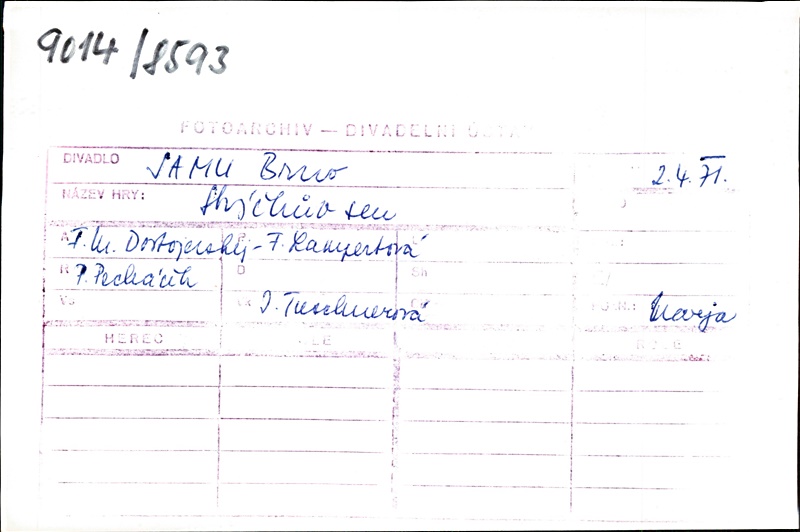 9014/8593
FOTOARCHIV — DIVADELNÍ ÚSTAV
DIVADLO JAMU Brno 2.4.71.
NÁZEV HRY: Strýčkův sen
A F. M. Dostojevskij - F. Lampertová
R P. Pecháček D Sh
Vs I. Tuschnerová
HEREC ROLE